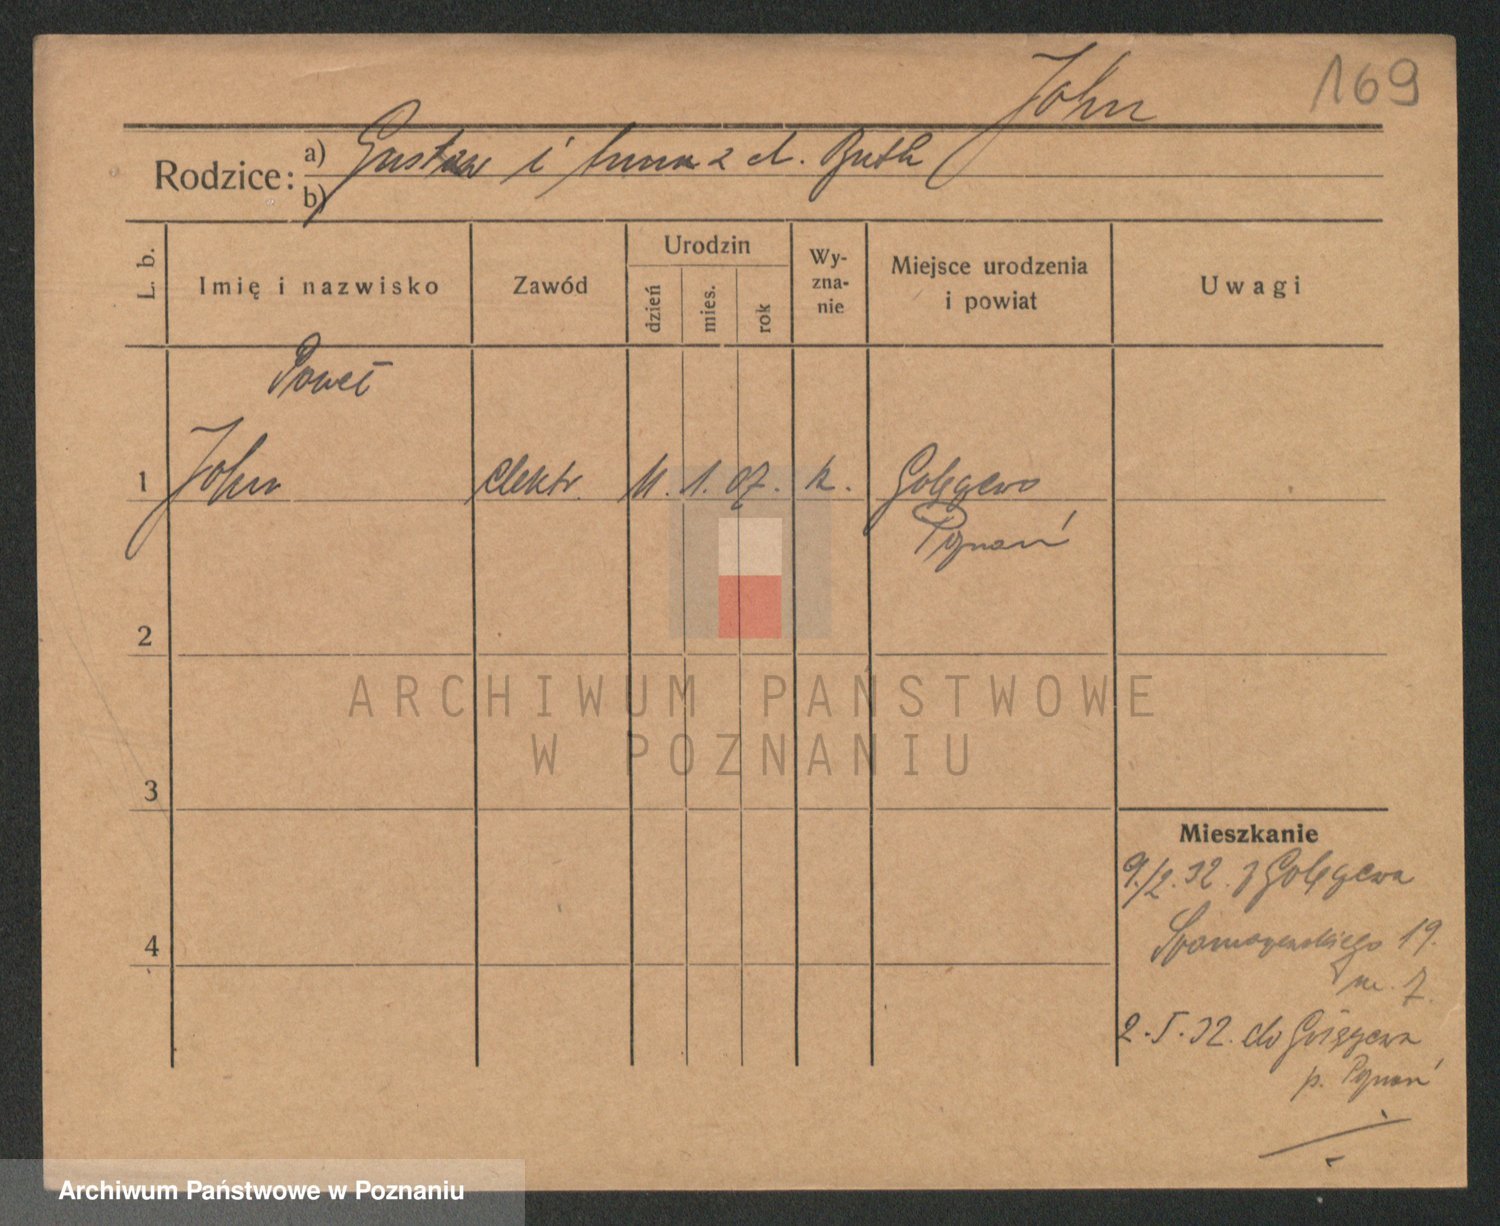 John
169
Rodzice:
a) Gustaw i Anna z d. Buth
b)
L. b.
Imię i nazwisko
Zawód
Urodzin
dzień
mies.
rok
Wy-
zna-
nie
Miejsce urodzenia
i powiat
Uwagi
Paweł
1 John elektr. 11. 1. 07. k. Golęczewo
Poznań
2
3
4
ARCHIWUM PAŃSTWOWE
W POZNANIU
Mieszkanie
9./2. 32. z Golęczewa
19.
m. 7.
2. 5. 32. do
p. Poznań
Archiwum Państwowe w Poznaniu